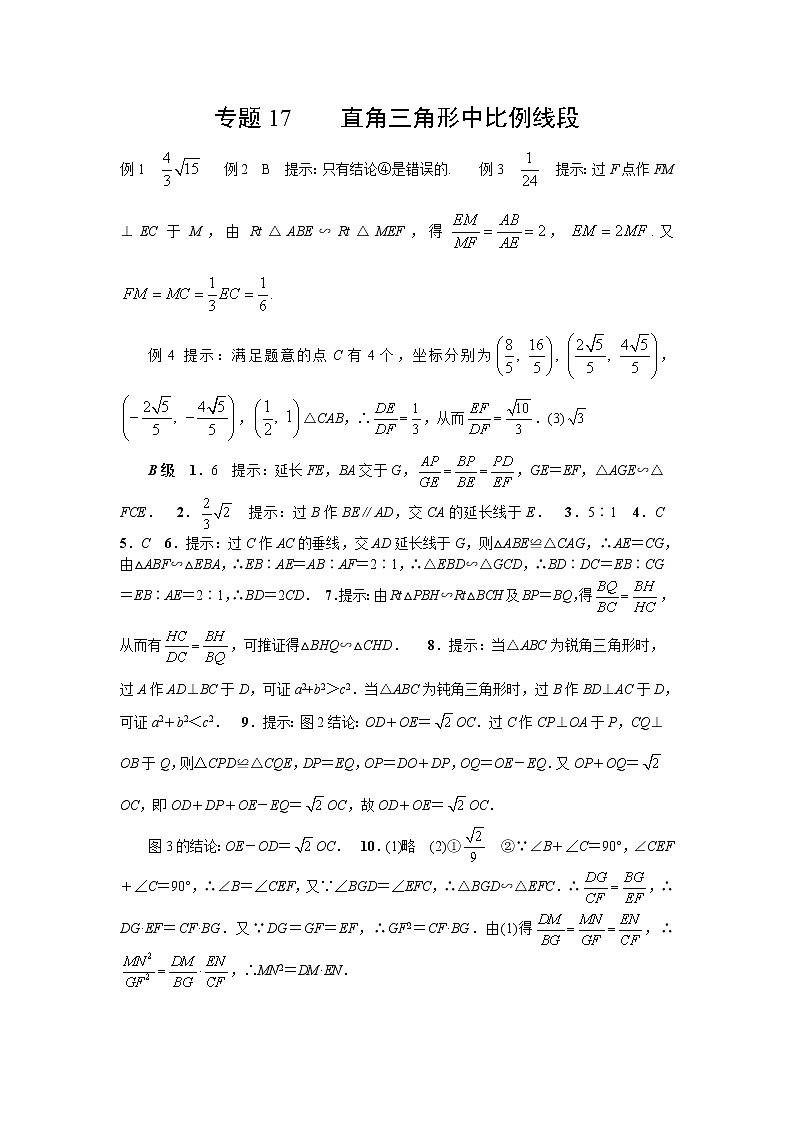 专题 17　　直角三角形中比例线段
例1　$\frac{4}{3}\sqrt{15}$　例2　B　提示:只有结论④是错误的.　例3　$\frac{1}{24}$　提示:过 F 点作 FM
⊥ EC 于 M , 由 Rt △ ABE ∽ Rt △ MEF , 得 $\frac{EM}{MF}=\frac{AB}{AE}=2$ , $EM=2MF$ . 又
$FM=MC=\frac{1}{3}EC=\frac{1}{6}$.
例4 提示:满足题意的点 C 有 4 个,坐标分别为 $\left(\frac{8}{5},\frac{16}{5}\right)$, $\left(\frac{2\sqrt{5}}{5},\frac{4\sqrt{5}}{5}\right)$,
$\left(-\frac{2\sqrt{5}}{5},-\frac{4\sqrt{5}}{5}\right)$, $\left(\frac{1}{2},1\right)$ △CAB,∴$\frac{DE}{DF}=\frac{1}{3}$,从而$\frac{EF}{DF}=\frac{\sqrt{10}}{3}$.(3) $\sqrt{3}$
B级　1.6　提示:延长 FE,BA交于 G,$\frac{AP}{GE}=\frac{BP}{BE}=\frac{PD}{EF}$,GE=EF,△AGE∽△
FCE.　2.$\frac{2}{3}\sqrt{2}$　提示:过 B 作 BE∥AD,交 CA 的延长线于 E.　3.5∶1　4.C
5.C　6.提示:过 C 作 AC 的垂线,交 AD 延长线于 G,则△ABE≌△CAG,∴AE=CG,
由△ABF∽△EBA,∴EB∶AE=AB∶AF=2∶1,∴△EBD∽△GCD,∴BD∶DC=EB∶CG
=EB∶AE=2∶1,∴BD=2CD.　7.提示:由 Rt△PBH∽Rt△BCH 及 BP=BQ,得$\frac{BQ}{BC}=\frac{BH}{HC}$,
从而有$\frac{HC}{DC}=\frac{BH}{BQ}$,可推证得△BHQ∽△CHD.　8.提示:当△ABC 为锐角三角形时,
过 A 作 AD⊥BC 于 D,可证 a²+b²＞c².当△ABC 为钝角三角形时,过 B 作 BD⊥AC 于 D,
可证 a²+b²＜c².　9.提示:图 2 结论:OD+OE=$\sqrt{2}$ OC.过 C 作 CP⊥OA 于 P,CQ⊥
OB 于 Q,则△CPD≌△CQE,DP=EQ,OP=DO+DP,OQ=OE-EQ.又 OP+OQ=$\sqrt{2}$
OC,即 OD+DP+OE-EQ=$\sqrt{2}$ OC,故 OD+OE=$\sqrt{2}$ OC.
图 3 的结论:OE-OD=$\sqrt{2}$ OC.　10.(1)略　(2)①$\frac{\sqrt{2}}{9}$　②∵∠B+∠C=90°,∠CEF
+∠C=90°,∴∠B=∠CEF,又∵∠BGD=∠EFC,∴△BGD∽△EFC.∴$\frac{DG}{CF}=\frac{BG}{EF}$,∴
DG·EF=CF·BG.又∵DG=GF=EF,∴GF²=CF·BG.由(1)得$\frac{DM}{BG}=\frac{MN}{GF}=\frac{EN}{CF}$,∴
$\frac{MN^2}{GF^2}=\frac{DM}{BG}\cdot\frac{EN}{CF}$,∴MN²=DM·EN.